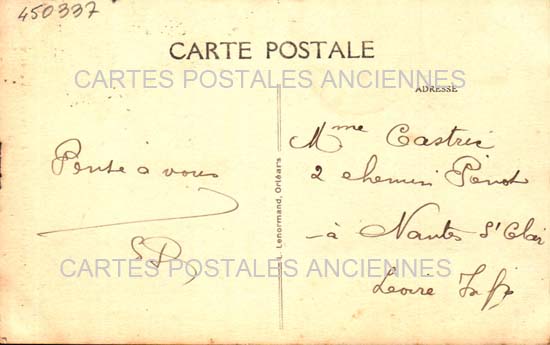 450337
CARTE POSTALE
CARTES POSTALES ANCIENNES
ADRESSE
Pense à vous
Mme Castric
2 chemin Pinot
à Nantes St Clair
Loire Infre
Lenormand, Orléans
CARTES POSTALES ANCIENNES